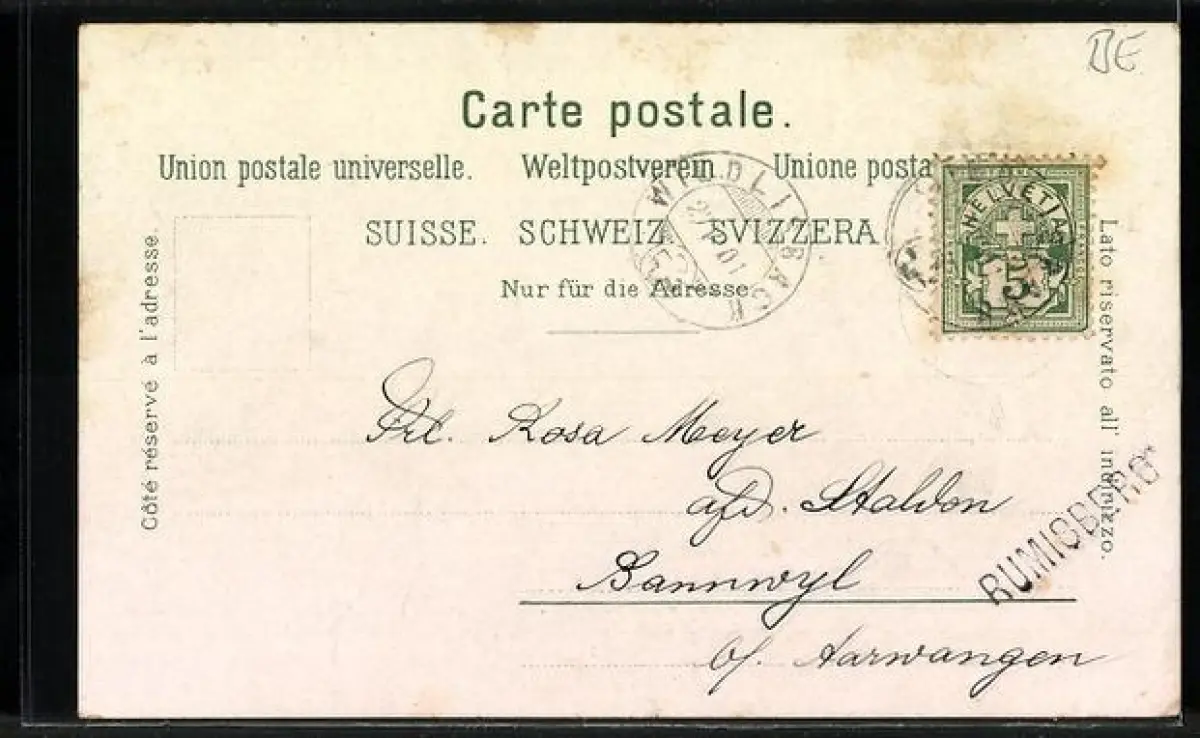 BE
Carte postale.
Union postale universelle. Weltpostverein. Unione posta
SUISSE. SCHWEIZ. SVIZZERA
Nur für die Adresse
Côté réservé à l'adresse.
Lato riservato all' indirizzo.
WIEDLISBACH
HELVETIA
5
Frl. Rosa Meyer
auf d. Staldon
Bannwyl
b/. Aarwangen
RUMISBERG